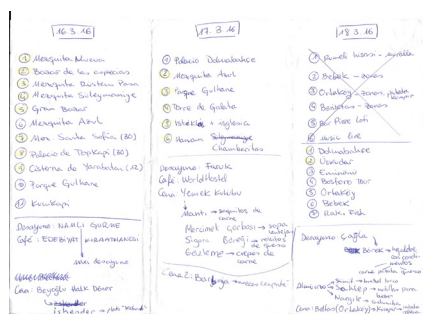 16.3.16
① Mezquita Nueva
② Bazar de las especias
③ Mezquita Rüstem Pasa
④ Mezquita Süleymaniye
⑤ Gran Bazar
⑥ Mezquita Azul
⑦ Mez. Santa Sofia (30)
⑧ Palacio de Topkapi (30)
⑨ Cisterna de Yerebatan (12)
⑩ Parque Gulhane
⑪ Kucukapi
Desayuno: NAMLI GURME
Café: EDEBIYAT KIRAATHANESI
más desayuno
Cena: Beyoğlu Halk Döner
iskender → plato
17.3.16
① Palacio Dolmabahce
② Mezquita Azul
③ Parque Gulhane
④ Torre de Galata
⑤ Istiklal + iglesia
⑥ Hamam Süleymaniye
Chambarlitas
Desayuno: Faruk
Café: WorldHostel
Cena: Yemek Kulubu
Manti → saquitos de carne
Mercimek Çorbasi → sopa lentejas
Sigara Böregi → rollitos de queso
Gözleme → crepes de carne
Cena 2:
18.3.16
① Rumeli hisari
② Bebek - zonas
③ Ortaköy - zonas
④ Besiktas - zonas
⑤ Pier Loti
⑥ music live
① Dolmabahce
② Üsküdar
③ Eminönü
④ Bosforo Tour
⑤ Ortaköy
⑥ Bebek
⑦ Raki Fish
Desayuno: Çağla
Börek →
carne patata queso
Almuerzo
Simit →
Sahlep →
Nargile → cachimba
Cena: (Ortaköy)